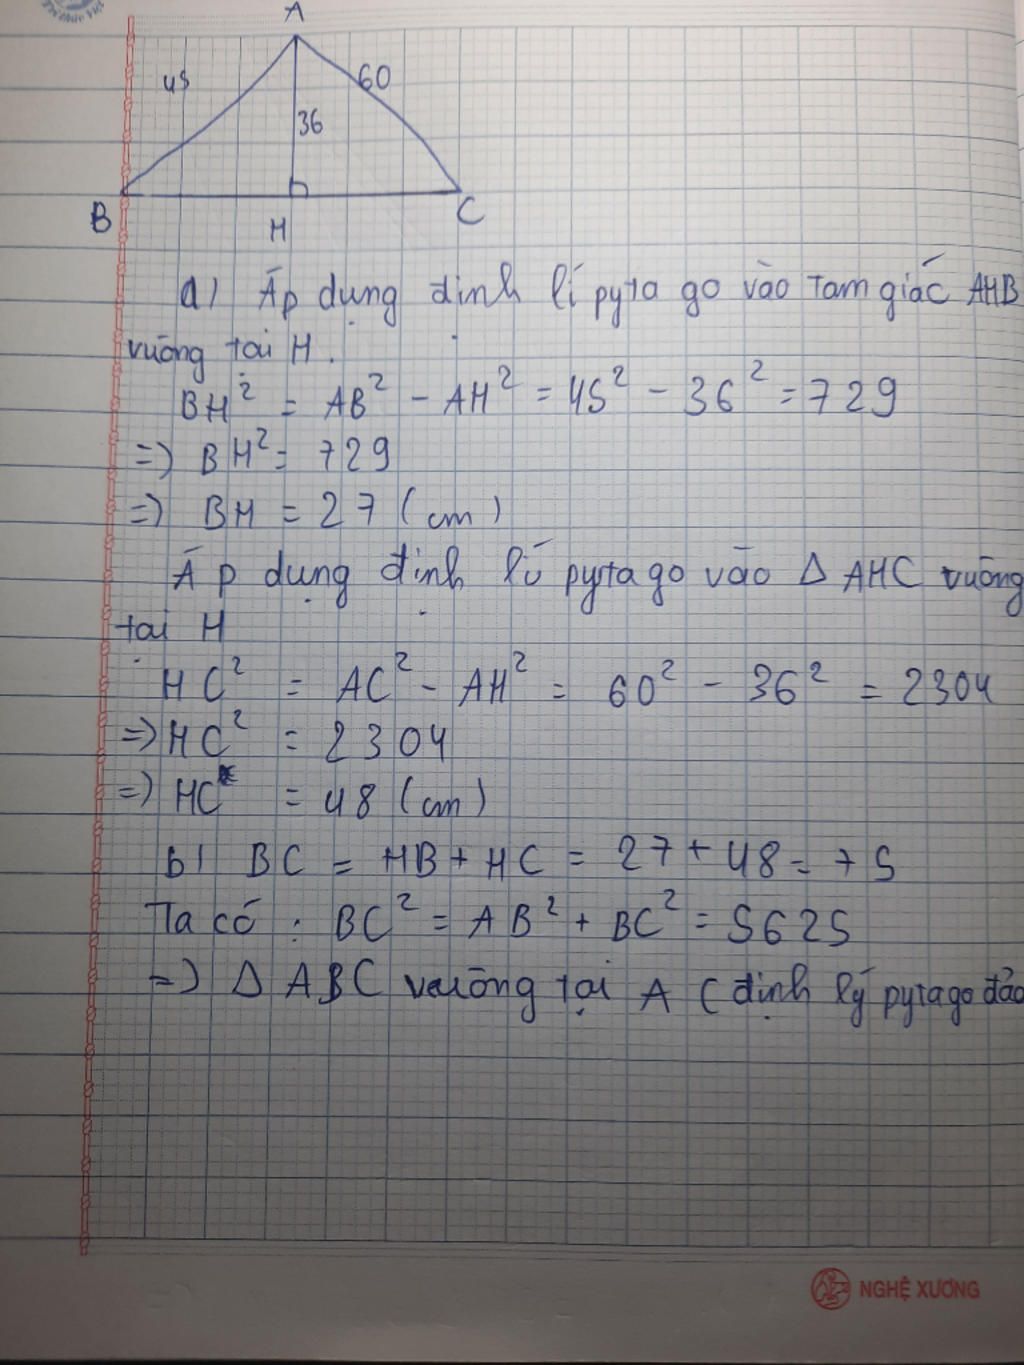 Trí thức Việt
A
45
60
36
B
H
C
a) Áp dụng định lí pyta go vào tam giác AHB
vuông tại H.
BH² = AB² - AH² = 45² - 36² = 729
=> BH² = 729
=> BH = 27 (cm)
Áp dụng định lí pytago vào Δ AHC vuông
tại H
HC² = AC² - AH² = 60² - 36² = 2304
=> HC² = 2304
=> HC = 48 (cm)
b) BC = HB + HC = 27 + 48 = 75
Ta có : BC² = AB² + BC² = 5625
=> Δ ABC vuông tại A (định lý pytago đảo
NGHỆ XƯƠNG